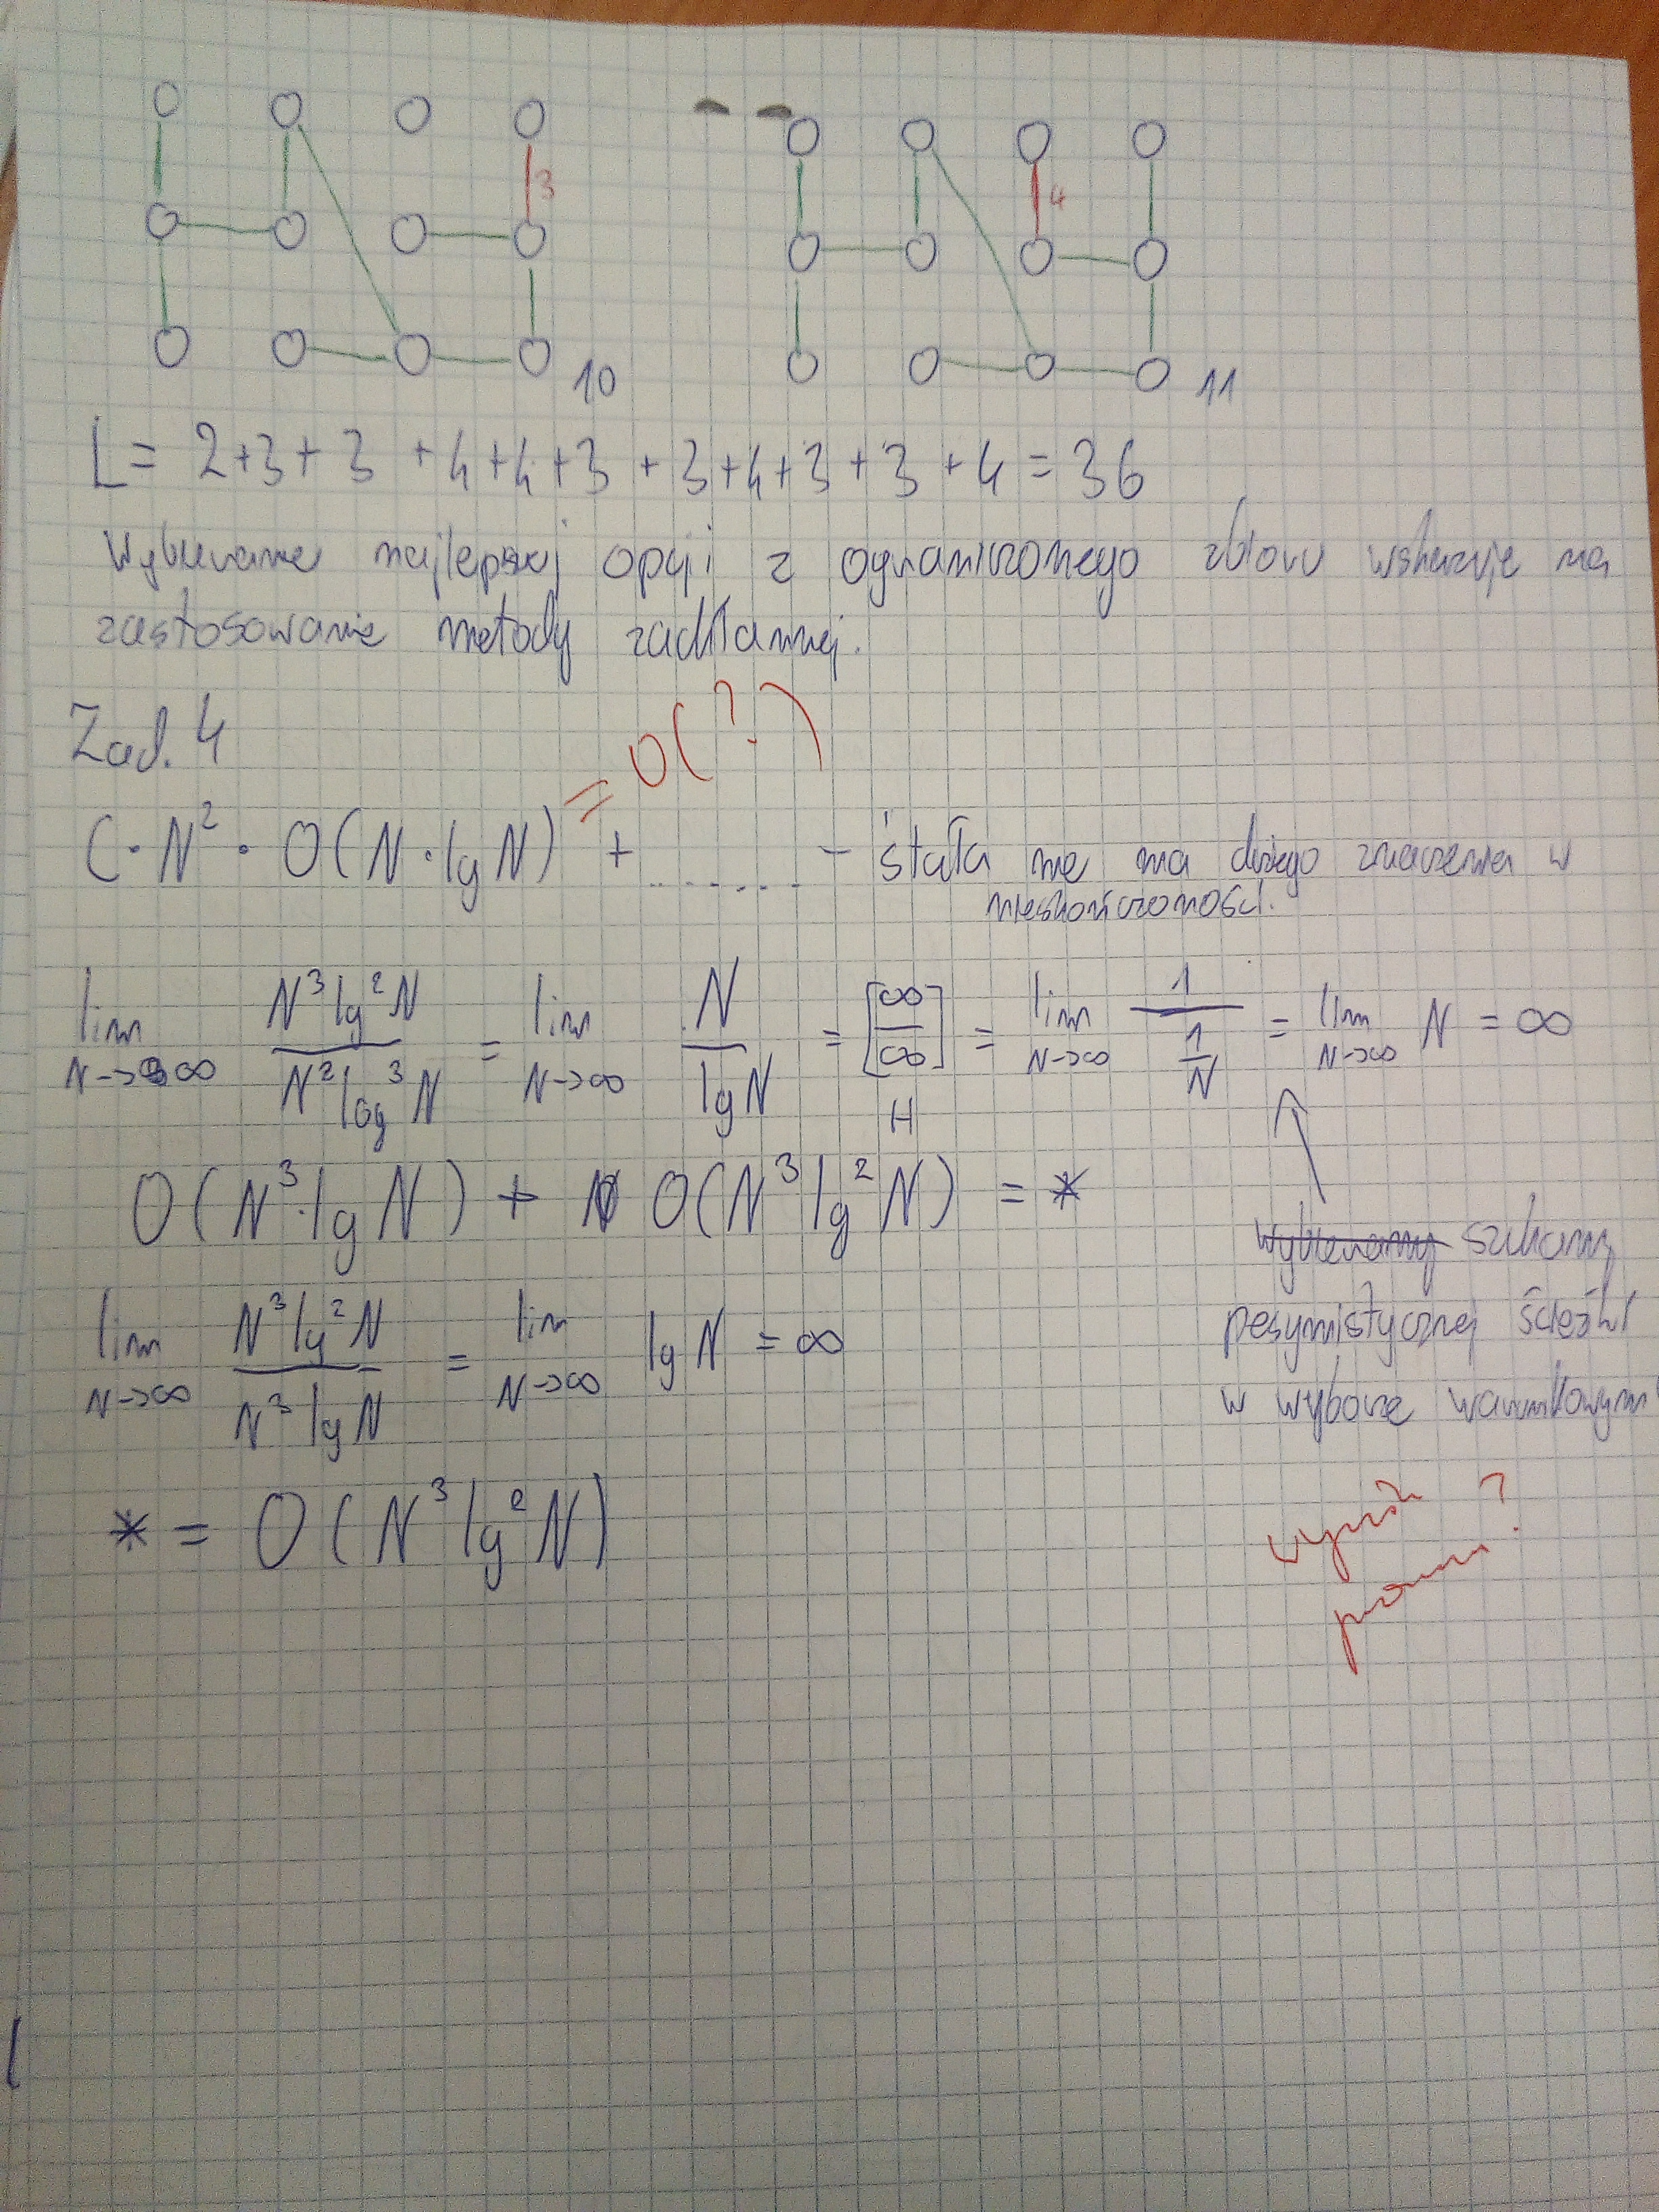 3
4
10
11
L = 2+3+3+4+4+3+3+4+3+3+4 = 36
Wybieranie najlepszej opcji z ograniczonego zbioru wskazuje na
zastosowanie metody zachłannej.
Zad. 4
= O(?)
C·N²· O(N·lgN) + ........ - stała nie ma dużego znaczenia w
nieskończoności.
lim N->∞ N³lg²N / N²log³N = lim N->∞ N / lgN = [∞/∞] H = lim N->∞ 1 / (1/N) = lim N->∞ N = ∞
O(N³·lgN) + O(N³lg²N) = *
wybieramy szukamy
pesymistycznej ścieżki
w wyborze warunkowym
lim N->∞ N³lg²N / N³lgN = lim N->∞ lgN = ∞
* = O(N³lg²N)
?
?